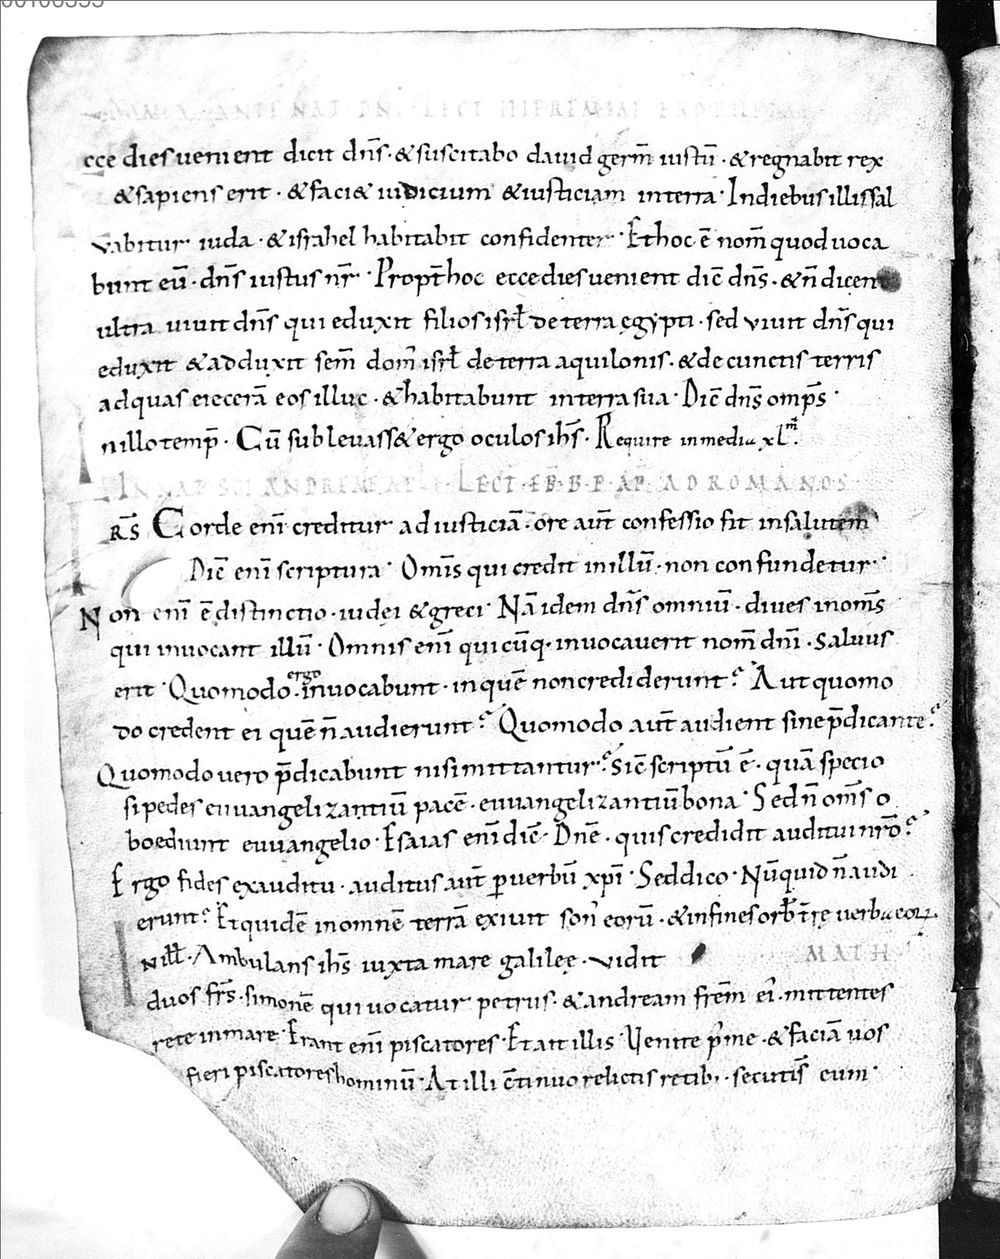 DOM̄CA ANTE NAT DN̄I LECT HIEREMIAE PROPHETAE
cce dies uenient dicit dn̄s · & suscitabo dauid germ̄ iustū · & regnabit rex
& sapiens erit · & faci& iudicium & iusticiam in terra · In diebus illis sal
vabitur iuda · & israhel habitabit confidenter · Et hoc ē nom̄ quod uoca
bunt eū · dn̄s iustus nr̄ · Propt̄ hoc ecce dies uenient dic̄ dn̄s · & n̄ dicent
ultra uiuit dn̄s qui eduxit filios isrł de terra ęgypti · sed viuit dn̄s qui
eduxit & adduxit sem̄ dom̄ isrł de terra aquilonis · & de cunctis terris
ad quas eiecerā eos illuc · & habitabunt in terra sua · Dic̄ dn̄s omp̄s ·
n illo temp̄ · Cū subleuass& ergo oculos ih̄s · Require in media xlm̄ ·
IN NAT SC̄I ANDREAE LECT · EP̄ · B · P · AP̄ · AD ROMANOS
RS̄ Corde enī creditur ad iusticiā · ore aut̄ confessio fit in salutem
Dic̄ enī scriptura · Omīs qui credit in illū · non confundetur ·
Non enī ē distinctio · iudei & greci · Nā idem dn̄s omniū · diues in om̄s
qui inuocant illū · Omnis enī qui cūq · inuocauerit nom̄ dn̄i · saluus
erit · Quomodo ergo inuocabunt · in quē non crediderunt? Aut quomo
do credent ei quē n̄ audierunt? Quomodo aut̄ audient sine p̄dicante?
Quomodo uero p̄dicabunt nisi mittantur? Sic̄ scriptū ē · quā specio
si pedes euuangelizantiū pacē · euuangelizantiū bona · Sed n̄ om̄s o
boediunt euuangelio · Esaias enī dic̄ · Dn̄e · quis credidit auditui nr̄o?
Ergo fides ex auditu · auditus aut̄ ꝑ uerbū xp̄i · Sed dico · Nūquid n̄ audi
erunt? Et quidē in omnē terrā exiuit son' eorū · & in fines orb̄ tr̄ę uerba eoꝝ ·
N iłł · Ambulans ih̄s iuxta mare galileę · vidit MATH
duos fr̄s · simonē qui uocatur petrus · & andream frēm ei' · mittentes
rete in mare · Erant enī piscatores · Et ait illis · Uenite p' me · & faciā uos
fieri piscatores hominū · At illi c̄tinuo relictis retib; · secuti s̄ eum ·